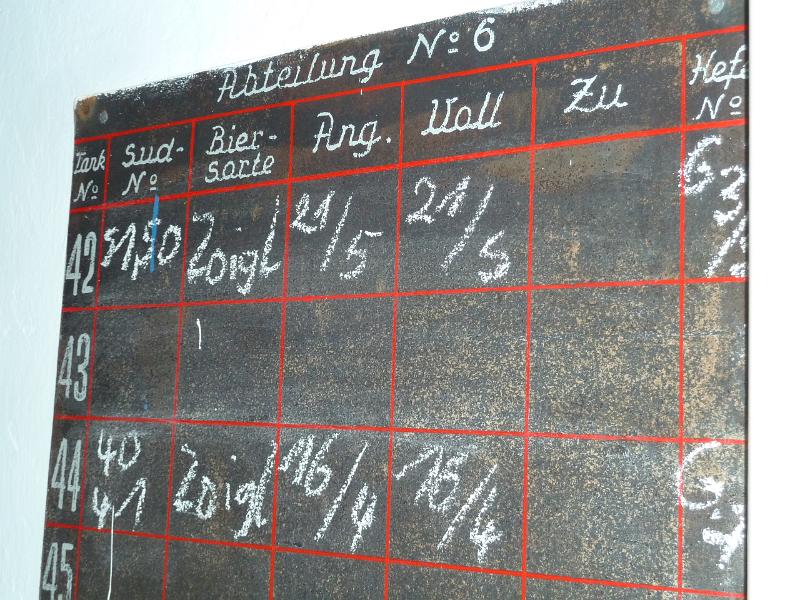 Abteilung Nº 6
Tank Nº Sud-Nº Bier-sorte Ang. Voll Zu Hefe Nº
42 Zoigl 21/5 21/5 G
43
44 40 41 Zoigl 16/4 16/4 G
45